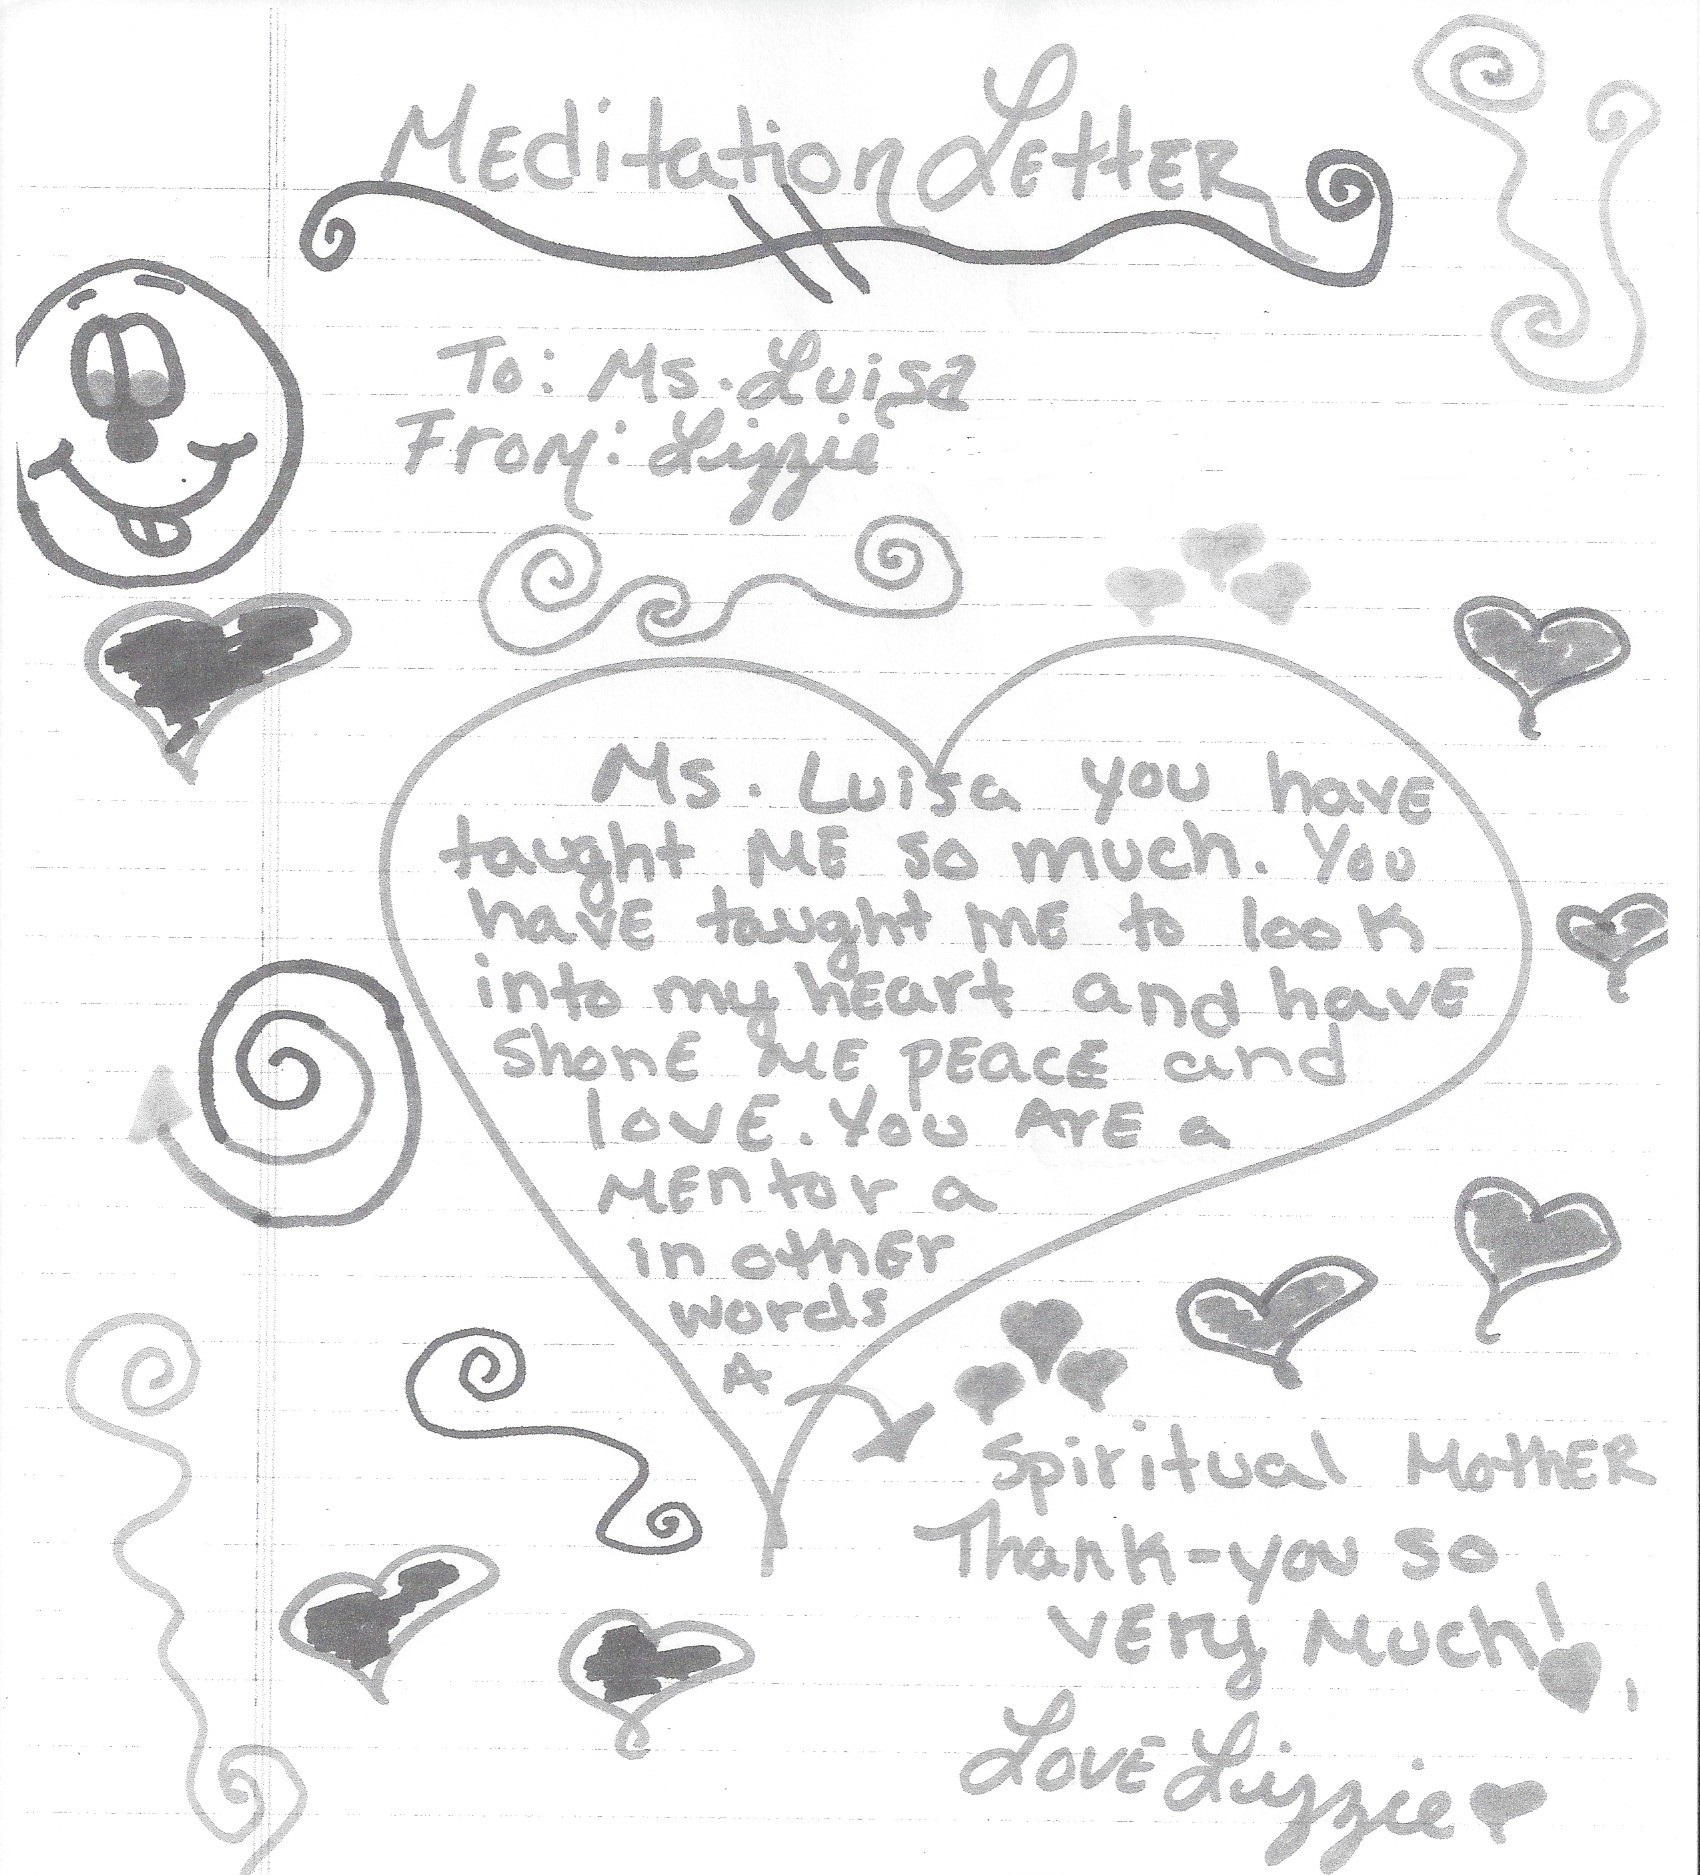 Meditation Letter
To: Ms. Luisa
From: Lizzie
Ms. Luisa you have
taught me so much. You
have taught me to look
into my heart and have
shone me peace and
love. You are a
mentor a
in other
words
A
Spiritual Mother
Thank-you so
very much!
Love Lizzie